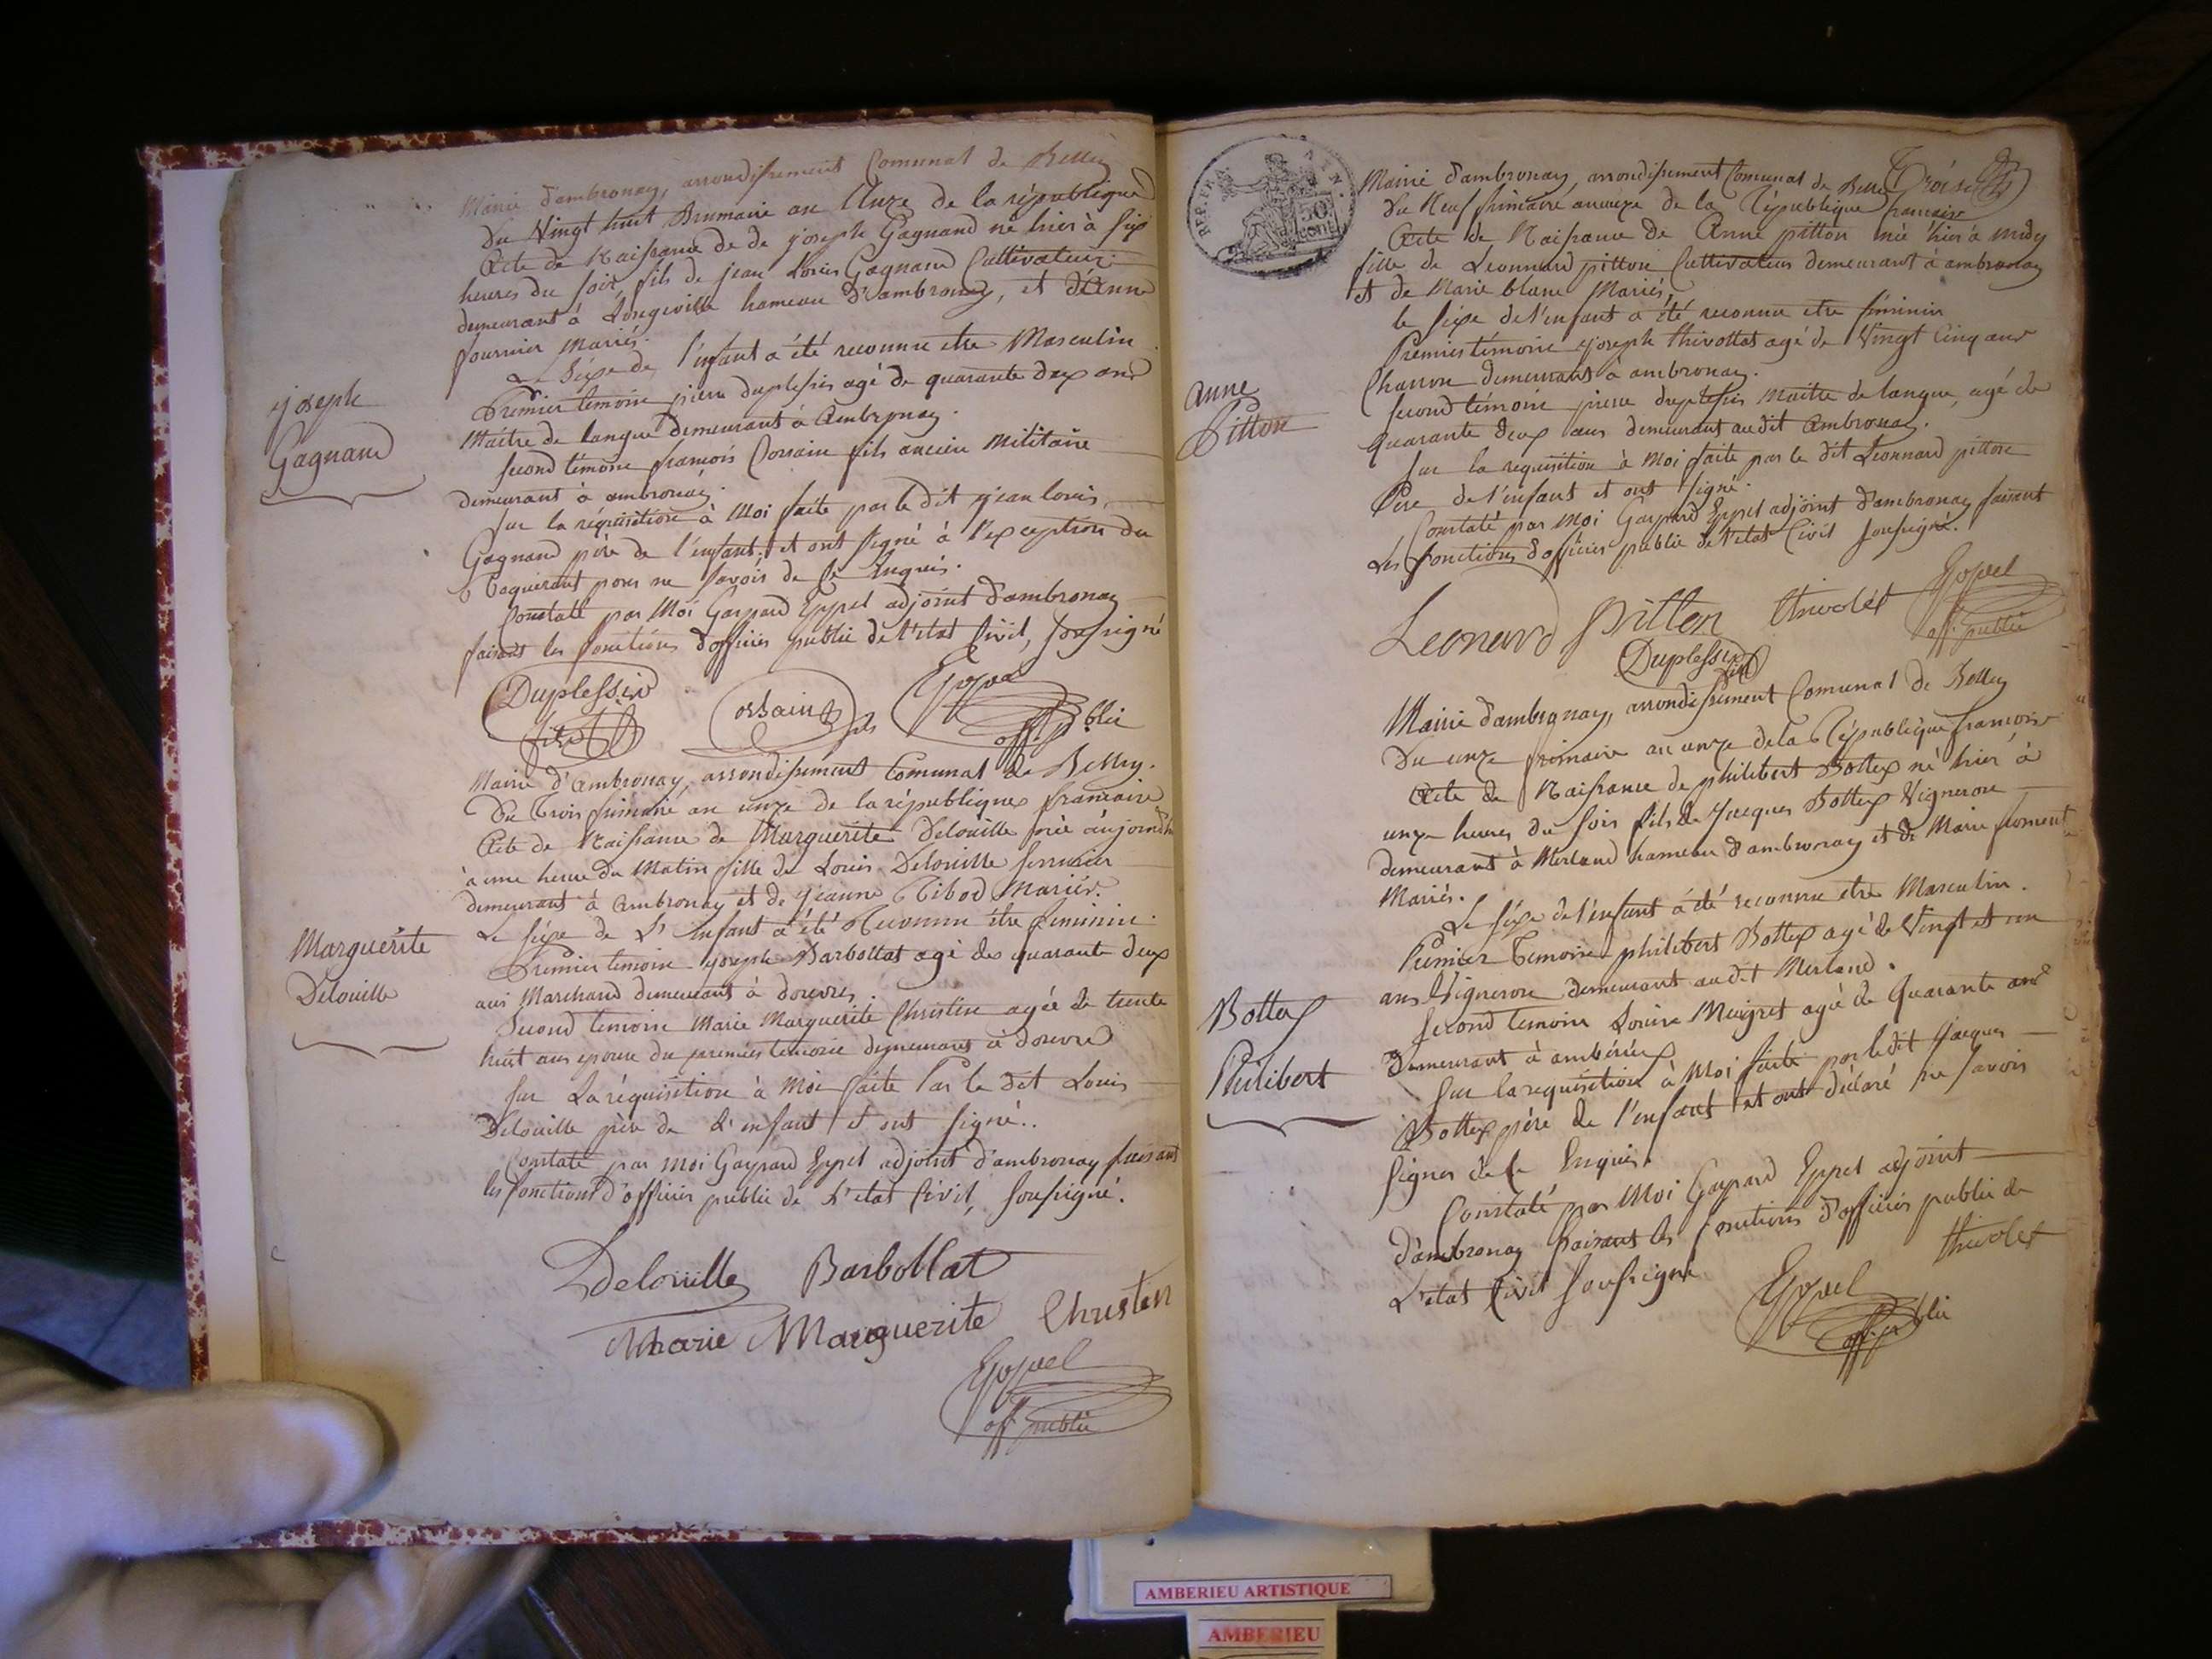 Mairie d'ambronay, arrondissement Comunal de Belley
Du Vingt huit Brumaire an Unze de la république
Acte de Naissance de de joseph Gagnand né hier à six
heures du soir, fils de jean Louis Gagnand Cultivateur
demeurant à Longeville hameau d'ambronay, et d'Anne
fournier Mariés.
Le Sexe de l'enfant a été reconnu etre Masculin
Premier temoin pierre duplessis agé de quarante deux ans
Maitre de langue demeurant à Ambronay.
joseph
Gagnand
second témoin francois Corsain fils ancien Militaire
demeurant à ambronay.
sur la réquisition à Moi faite par le dit jean louis
Gagnand père de l'enfant, et ont signé à l'exception du
Requerant pour ne savoir de ce Enquis.
Constaté par Moi Gaspard Eppel adjoint d'ambronay
faisant les fonctions d'officier public de l'etat Civil, soussigné
Duplessis fils Corsain fils Eppel
off. public
Mairie d'Ambronay, arrondissement Comunal de Belley.
Du Trois frimaire an unze de la république francaise
Acte de Naissance de Marguerite Delouille née aujourdh
à une heure du Matin fille de Louis Delouille serrurier
demeurant à Ambronay et de jeanne Tibod Mariés.
Le sexe de L'enfant a été Reconnu être feminin.
Premier temoin joseph Barbollat agé de quarante deux
ans Marchand demeurant à douvres
Marguerite
Delouille
Second temoin Marie Marguerite Christin agée de trente
huit ans epouse du premier temoin demeurant à douvre
Sur La réquisition à Moi faite Par le dit Louis
Delouille père de L'enfant et ont signé..
Constaté par moi Gaspard Eppel adjoint d'ambronay faisant
les fonctions d'officier public de L'etat Civil, soussigné.
Delouille Barbollat
Marie Marguerite Christin
Eppel
off. public
Mairie d'ambronay, arrondissement Comunal de Belley Trois
Du Neuf frimaire an unze de la République francaise
Acte de Naissance de Anne pitton née hier à midy
fille de Léonnard pitton Cultivateur demeurant à ambronay
et de Marie blanc Mariés,
le sexe de l'enfant a été reconnu etre féminin
Premier témoin joseph thivollat agé de Vingt Cinq ans
Charron demeurant à ambronay.
anne
Pitton
second témoin pierre duplessis Maitre de langue, agé de
quarante deux ans demeurant audit Ambronay.
sur la requisition à Moi faite par le dit Léonnard pitton
Père de l'enfant et ont signé.
Constaté par moi Gaspard Eppel adjoint d'ambronay faisant
Les fonctions d'officier public de l'etat Civil soussigné.
Leonard Pitton thivolet Eppel
off. public
Duplessis fils
Mairie d'ambronay, arrondissement Comunal de Belley
Du unze frimaire an unze de la République francoise
Acte de Naissance de philibert Bottex né hier à
unze heures du soir fils de Jacques Bottex Vigneron
demeurant à Merland hameau d'ambronay et de Marie froment
Mariés.
Le sexe de l'enfant à été reconnu etre Masculin.
Premier Temoin philibert Bottex agé de Vingt et un
ans Vigneron demeurant audit Merland.
Bottex
Philibert
second temoin Louise Maigret agé de Quarante ans
Demeurant à ambérieux
Sur la requisition à Moi faite par ledit Jacques
Bottex père de l'enfant et ont déclaré ne savoir
signer de ce Enquis.
Constaté par Moi Gaspard Eppel adjoint
d'ambronay faisant les fonctions d'officier public de
L'etat Civil soussigné
thivolet
Eppel
off. public
AMBERIEU ARTISTIQUE
AMBERIEU